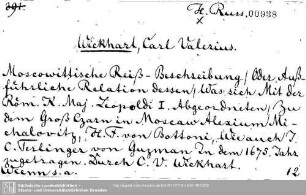 391.
H. Russ. 00938
x
Wickhart, Carl Valerius.
Moscowittische Reiß-Beschreibung/ Oder Auß-
führliche Relation dessen/ Was sich Mit der
Röm. K. Maj. Leopoldi I. Abgeordneten/ Zu
dem Groß Czarn in Moscaw Alexium Mi-
chalovitz, H. F. von Bottoni, Wie auch/ J.
C. Terlinger von Guzman In dem 1675. Jahr
zugetragen. Durch C. V. Wickhart.
Wienn s.a.
12
Sächsische Landesbibliothek -
Staats- und Universitätsbibliothek Dresden